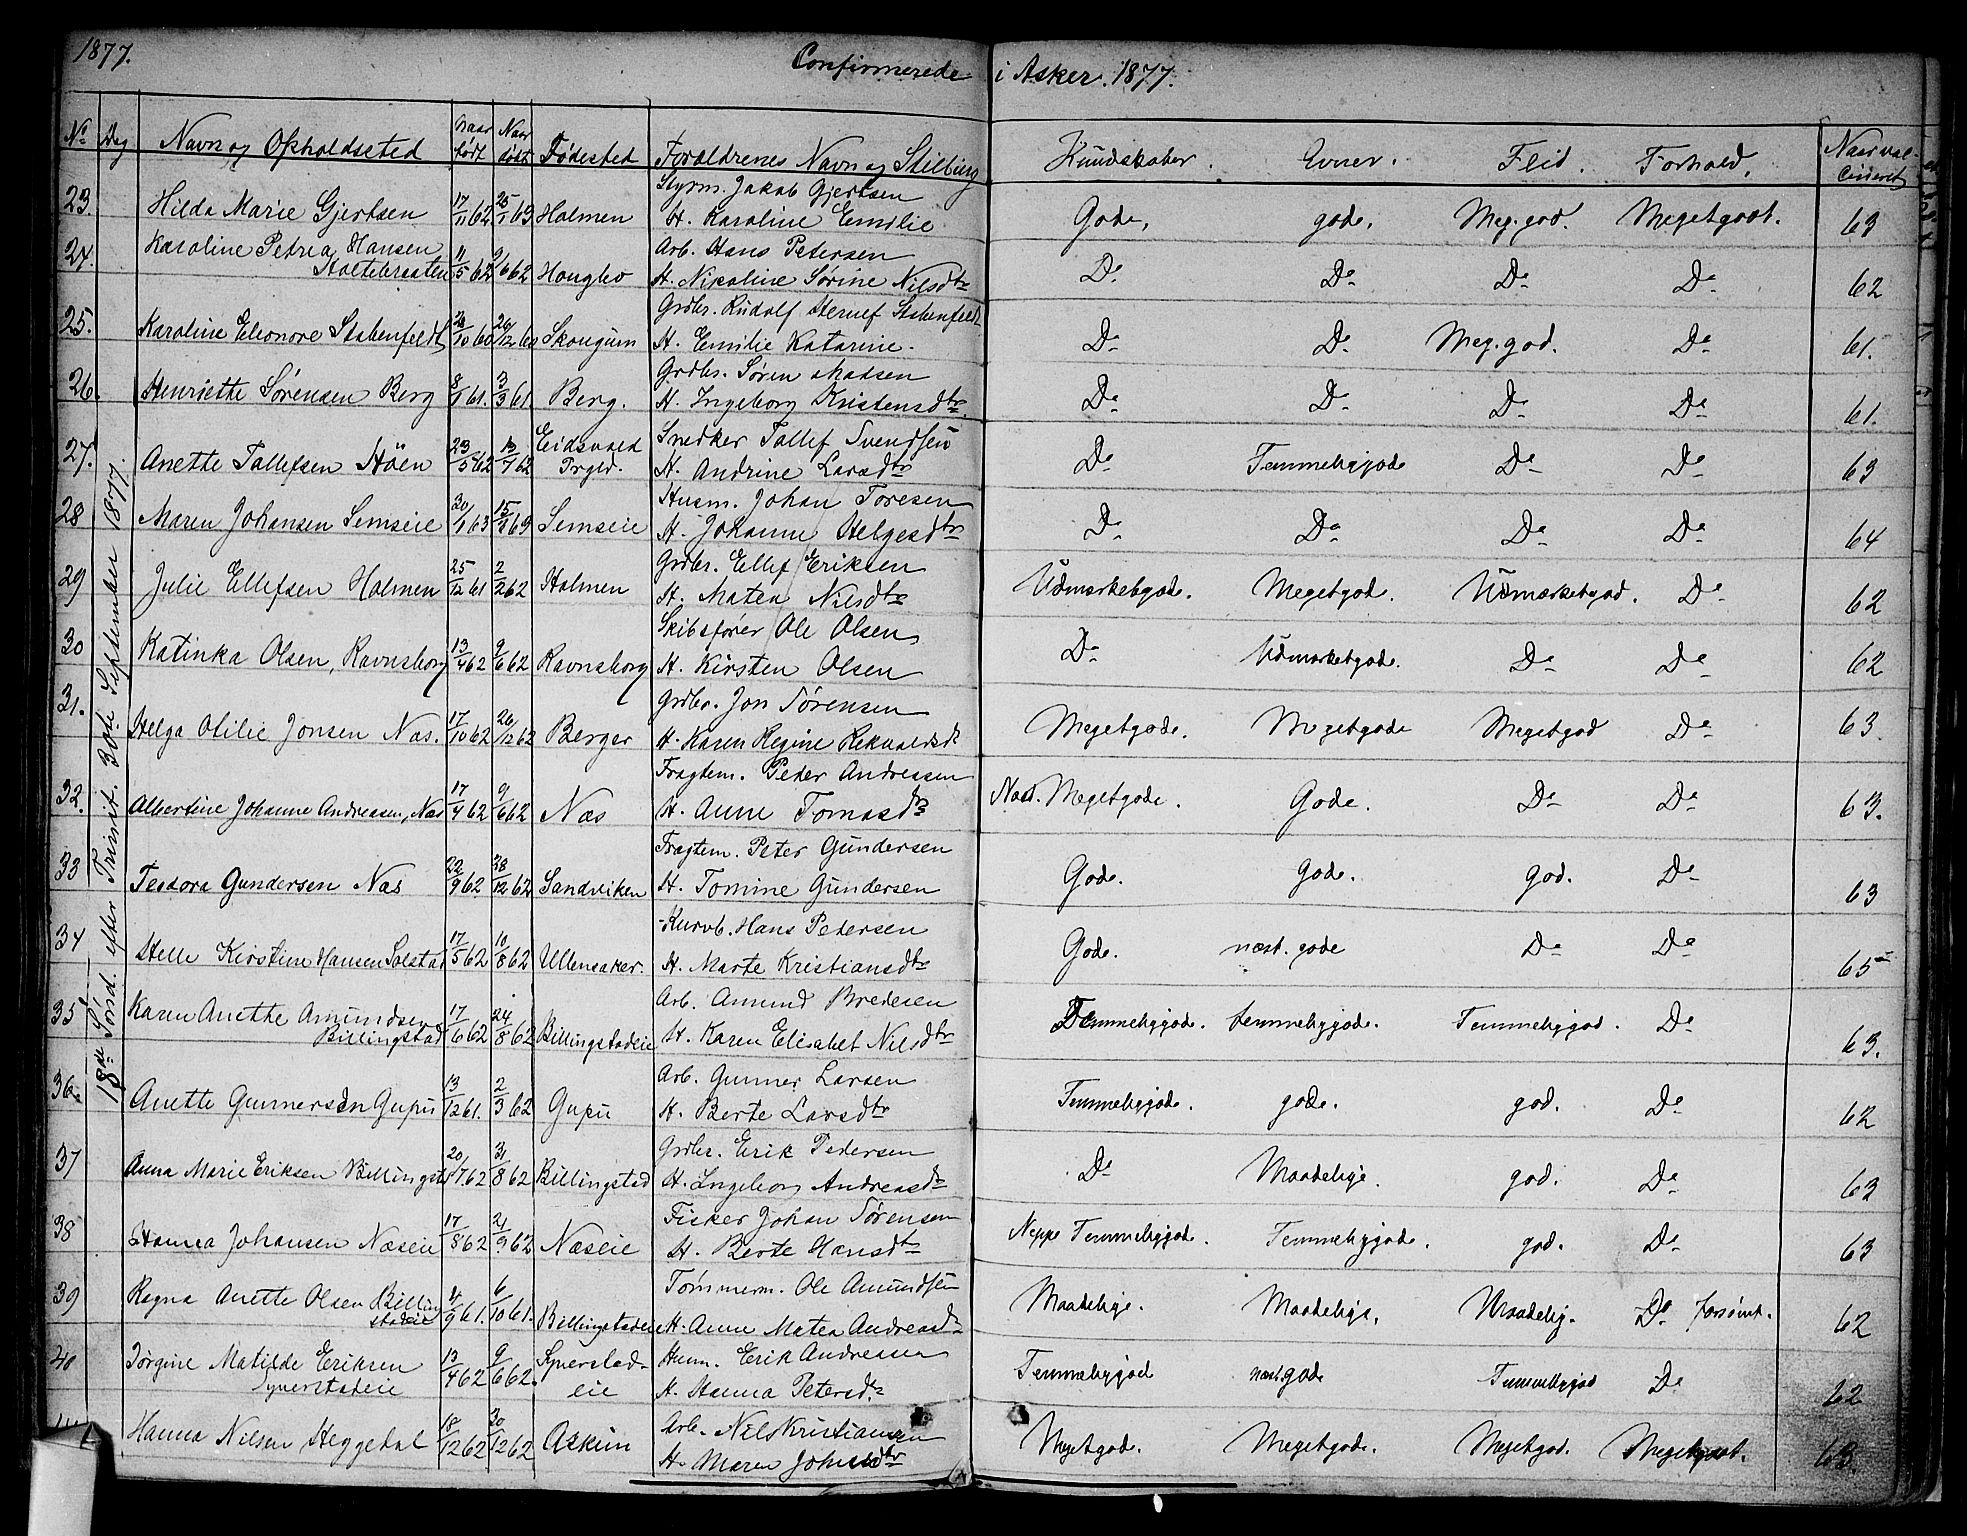 1877. Confirmerede i Asker. 1877.
No Dag Navn og Opholdssted Naar født Naar døbt Fødested Forældrenes Navn og Stilling Kundskaber. Evner. Flid. Forhold. Naar vaccineret
18de Sønd. efter Trinit. 30te September 1877.
Styrm. Jakob Gjertsen
23. Hilda Marie Gjertsen 17/11 62 25/1 63 Holmen H. Karoline Emilie Gode, gode, Meg. god. Megetgodt. 63
24. Karoline Petrea Hansen Arb. Hans Petersen
Holtebraaten 11/5 62 9/6 62 Hougbo H. Nikoline Sørine Nilsdtr Do Do Do Do 62
25. Grdbr. Rudolf Stabenfeldt
Karoline Eleonore Stabenfeldt 26/10 60 26/12 60 Skougum H. Emilie Katarine. Do Do Meg. god. Do 61.
26. Grdbr. Søren Madsen
Henriette Sørensen Berg 8/1 61. 3/3 61 Berg. H. Ingeborg Kristensdtr. Do Do Do Do 61.
27. Eidsvold Snedker Tallef Svendsen
Anette Tallefsen Höen 23/5 62 13/7 62 Prgld. H. Andrine Larsdtr Do Temmeliggode Do Do 63
28 Husm. Johan Toresen
Maren Johansen Semseie 30/1 63 15/3 63 Semseie H. Johanne Helgesdtr Do Do Do Do 64
29 Grdbr. Ellef Eriksen
Julie Ellefsen Holmen 25/12 61 2/2 62 Holmen H. Matea Nilsdtr Udmærketgode. Megetgode. Udmærketgod. Do 62
30 Skibsfører Ole Olsen
Katinka Olsen, Ravnsborg 13/4 62 9/6 62 Ravnsborg H. Kirsten Olsen Do Udmærketgode. Do Do 62
31. Grdbr. Jon Sørensen
Helga Otilie Jonsen Næs. 17/10 62 26/12 62 Berger H. Karen Regine Rekvaldsdt Megetgode. Megetgode Megetgod Do 63.
32. Fragtem. Peder Andreassen
Albertine Johanne Andreasen, Næs 17/4 62 9/6 62 Næs H. Anne Tomasdtr Næst. Megetgode. Gode. Do Do 63.
33 Fragtem. Peter Gundersen
Teodora Gundersen Næs 22/9 62 28/12 62 Sandviken H. Tomine Gundersen Gode. gode. god. Do 63
34 Kurvb. Hans Petersen
Helle Kirstine Hansen Solstad 17/5 62 10/8 62 Ullensaker. H. Marte Kristiansdtr Gode. næst. gode Do Do 65
35 Karen Anette Amundsen Arb. Amund Bredesen
Billingstad 17/6 62 24/8 62 Billingstadeie H. Karen Elisabet Nilsdtr Temmeliggode. temmeliggode. Temmeliggod. Do 63.
36. Arb. Gunner Larsen
Anette Gunnersen Gupu 13/12 61. 2/3 62 Gupu H. Berte Larsdtr Temmeliggode. gode. god. Do 62
37 Grdbr. Erik Pedersen
Anna Marie Eriksen Billingstad 20/7 62 31/8 62 Billingstad H. Ingeborg Andreasdtr Do Maadelige. god. Do 63
38 Fisker Johan Sørensen
Hanna Johansen Næseie 17/8 62 21/9 62 Næseie H. Berte Hansdtr Neppe Temmeliggode. Temmeliggode. god. Do 63
39 Ragna Anette Olsen Billing Tømmerm. Ole Amundsen
stadeie 4/9 61. 6/10 61. Billingstadeie H. Anne Matea Andreasdtr Maadelige. Maadelige. Maadelig. Do forsømt. 62
40 Jørgine Matilde Eriksen 13/4 62 9/6 62. Syverstad- Husm. Erik Andreasen
Syverstadeie eie H. Hanna Petersdtr Temmeliggod næst. gode Temmeliggod Do 62
Hanna Nilsen Heggedal 18/12 62 20/12 62 Askum Arb. Nils Kristiansen
H. Maren Johnsdtr Megetgode. Megetgode. Megetgod. Megetgodt. 63.